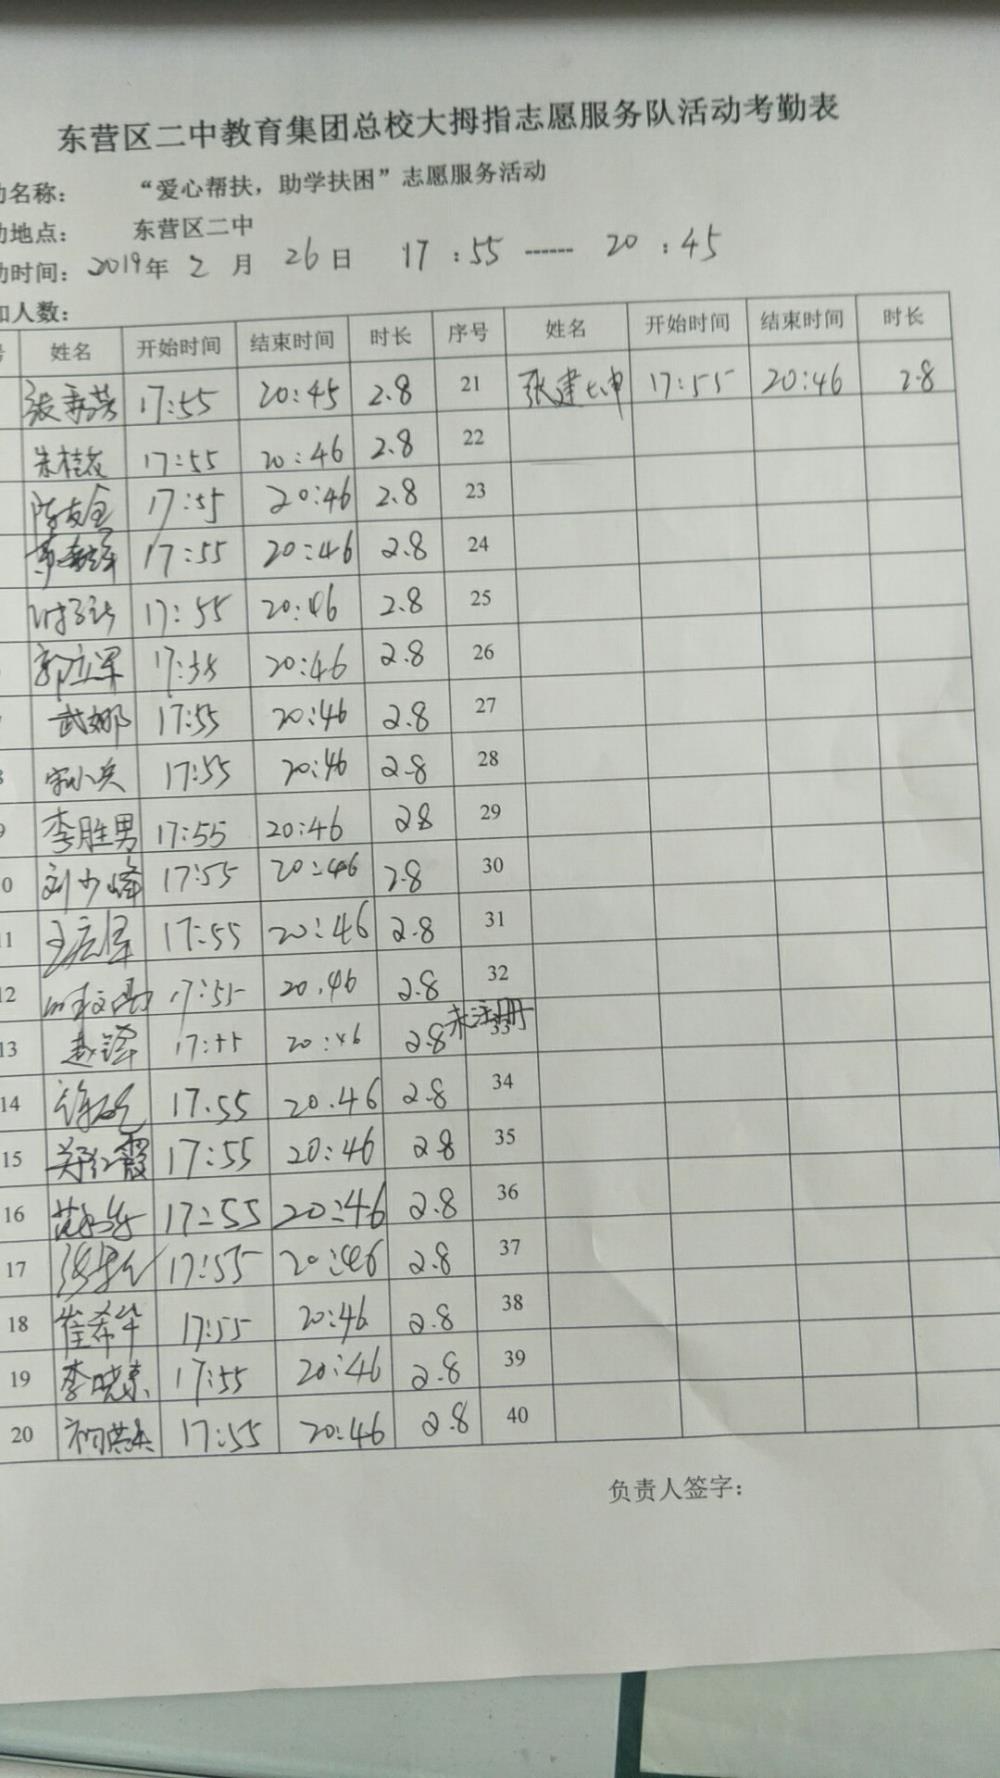 东营区二中教育集团总校大拇指志愿服务队活动考勤表
动名称： “爱心帮扶，助学扶困”志愿服务活动
动地点： 东营区二中
动时间：2019年 2 月 26日 17：55 ------ 20：45
加人数：
号 姓名 开始时间 结束时间 时长 序号 姓名 开始时间 结束时间 时长
17:55 20:45 2.8 21 张建坤 17:55 20:46 2.8
朱桂友 17:55 20:46 2.8 22
陈友全 17:55 20:46 2.8 23
17:55 20:46 2.8 24
17:55 20:46 2.8 25
郭立军 17:55 20:46 2.8 26
武娜 17:55 20:46 2.8 27
宋小兵 17:55 20:46 2.8 28
9 李胜男 17:55 20:46 28 29
0 刘少峰 17:55 20:46 2.8 30
11 17:55 20:46 2.8 31
12 17:55 20.46 2.8 32
13 赵锋 17:55 20:46 2.8 未注册 33
14 17.55 20.46 2.8 34
15 郑红霞 17:55 20:46 2.8 35
16 17:55 20:46 2.8 36
17 17:55 20:46 2.8 37
18 崔希华 17:55 20:46 2.8 38
19 李晓东 17:55 20:46 2.8 39
20 17:55 20:46 2.8 40
负责人签字：